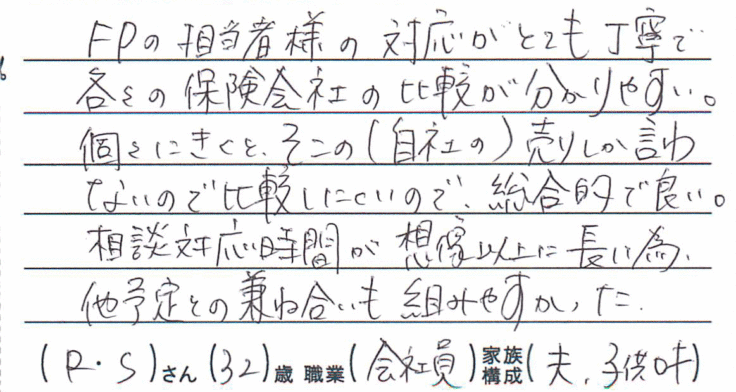 FPの担当者様の対応がとても丁寧で
各々の保険会社の比較が分かりやすい。
個々にきくと、そこの(自社の)売りしか言わ
ないので比較しにくいので、総合的で良い。
相談対応時間が想像以上に長い為、
他予定との兼ね合いも組みやすかった。
(R・S)さん(32)歳 職業(会社員)家族構成(夫、子供1人)